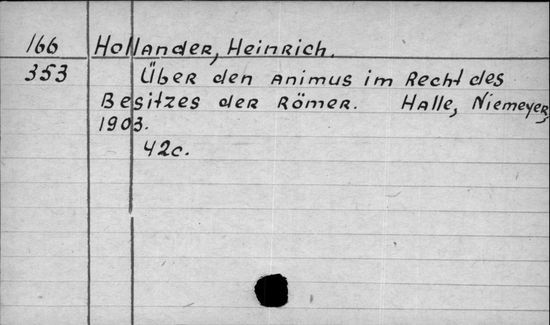 166 Hollander, Heinrich.
353 Über den animus im Recht des
Besitzes der Römer. Halle, Niemeyer,
1903.
42c.